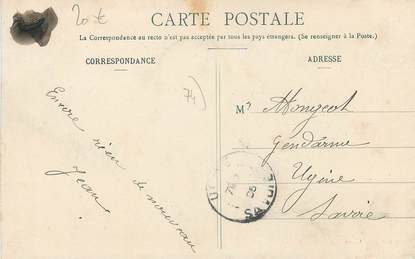 20 €
CARTE POSTALE
La Correspondance au recto n'est pas acceptée par tous les pays étrangers. (Se renseigner à la Poste.)
CORRESPONDANCE
ADRESSE
74
Encore rien de nouveau
Jean
Mr Mongeot
Gendarme
Ugine
Savoie